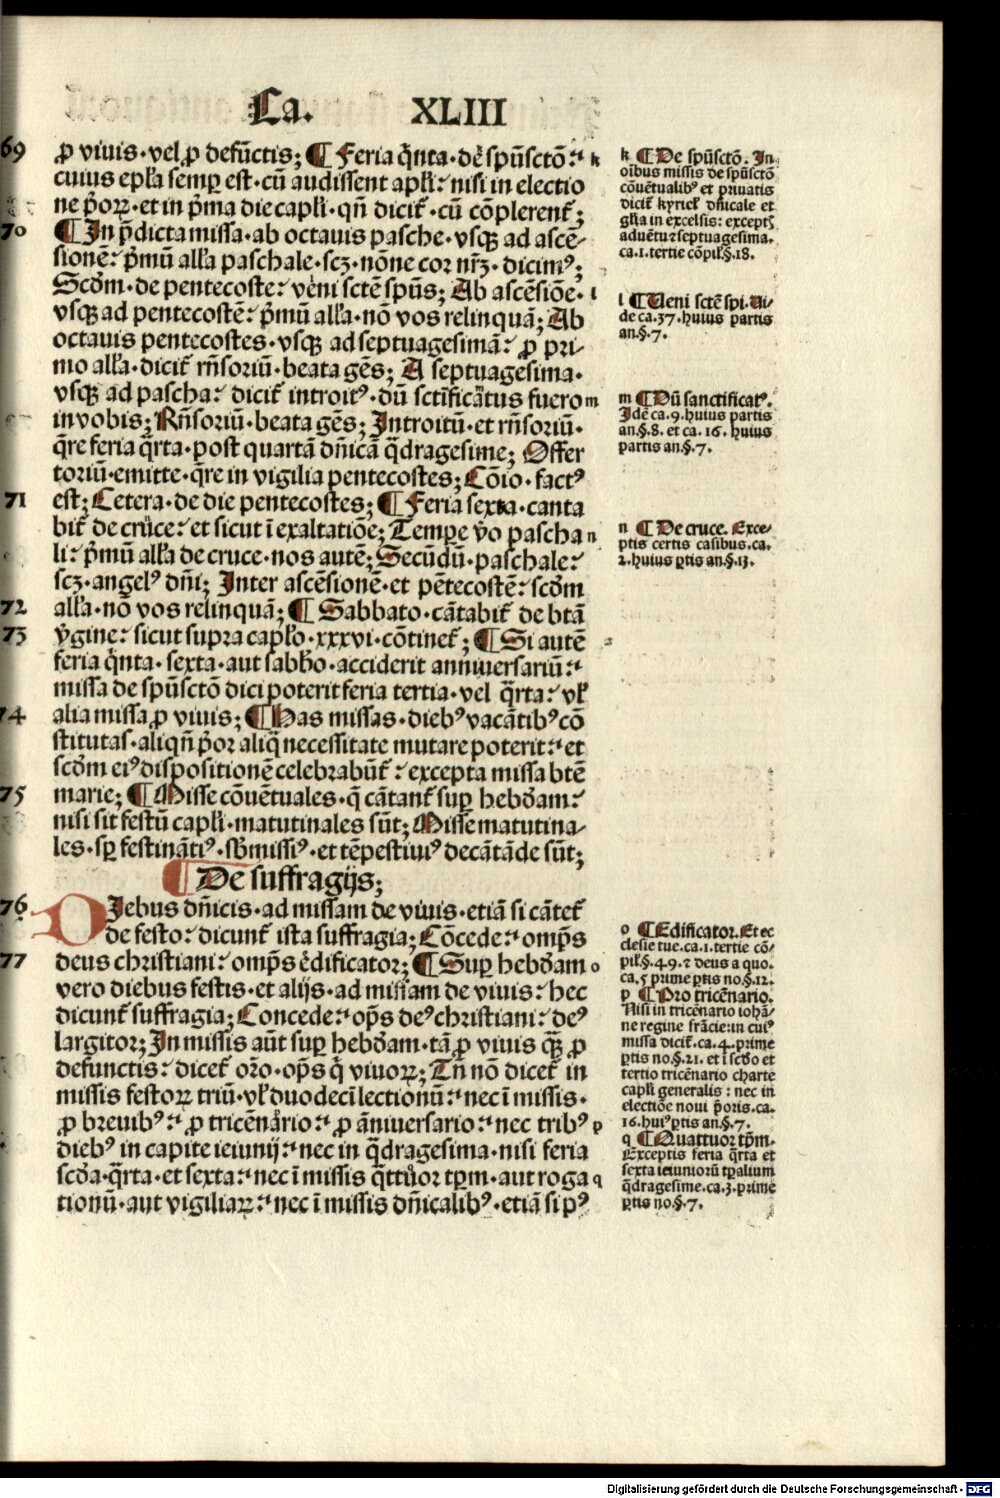 Ca. XLIII
69 ꝓ viuis·vel ꝓ defūctis; ¶ Feria q̄nta·dē spūsctō:· k
cuius epl̄a semꝑ est·cū audissent apl̄i: nisi in electio
ne p̄oꝝ·et in p̄ma die capl̄i·qn̄ dicit̄·cū cōplerent̄;
70 ¶ In p̄dicta missa·ab octauis pasche·vsqꝫ ad ascē-
sionē: p̄mū all̄a paschale·scꝫ·nōne cor nr̄ꝫ·dicimꝰ;
Scd̄m·de pentecoste: veni sctē spūs; Ab ascēsiōe· l
vsqꝫ ad pentecostē: p̄mū all̄a·nō vos relinquā; Ab
octauis pentecostes·vsqꝫ ad septuagesimā: ꝓ pri-
mo all̄a·dicit̄ rn̄soriū·beata gēs; A septuagesima·
vsqꝫ ad pascha: dicit̄ introitꝰ·dū sctīficātus fuero m
in vobis; Rn̄soriū·beata gēs; Introitū·et rn̄soriū·
q̄re feria q̄rta·post quartā dn̄icā q̄dragesime; Offer
toriū·emitte·q̄re in vigilia pentecostes; Cōio·factꝰ
71 est; Cetera·de die pentecostes; ¶ Feria sexta·canta
bit̄ de cruce: et sicut ī exaltatiōe; Tempe v̄o pascha n
li: p̄mū all̄a de cruce·nos autē; Secūdū·paschale:
scꝫ·angelꝰ dn̄i; Inter ascēsionē·et pētecostē: scd̄m
72 all̄a·nō vos relinquā; ¶ Sabbato·cātabit̄ de btā
73 v̄gine: sicut supra capl̄o·xxxvi·cōtinet̄; ¶ Si autē
feria q̄nta·sexta·aut sabb̄o·acciderit anniuersariū:·
missa de spūsctō dici poterit feria tertia·vel q̄rta: vl̄
74 alia missa ꝓ viuis; ¶ Has missas·diebꝰ vacātibꝰ cō
stitutas·aliqn̄ p̄or aliq̄ necessitate mutare poterit:· et
scd̄m eiꝰ dispositionē celebrabūt̄: excepta missa btē
75 marie; ¶ Misse cōuētuales·q̄ cātant̄ suꝑ hebd̄am:
nisi sit festū capl̄i·matutinales sūt; Misse matutina-
les·sꝑ festinātiꝰ·sb̄missiꝰ·et tēpestiuiꝰ decātāde sūt;
¶ De suffragijs;
76 DIebus dn̄icis·ad missam de viuis·etiā si cātet̄
de festo: dicunt̄ ista suffragia; Cōcede:· omp̄s
77 deus christiani: omp̄s edificator; ¶ Suꝑ hebd̄am o
vero diebus festis·et alijs·ad missam de viuis: hec
dicunt̄ suffragia; Concede:· op̄s deꝰ christiani: deꝰ
largitor; In missis aūt suꝑ hebd̄am·tā ꝓ viuis qꝫ̄ ꝓ
defunctis: dicet̄ or̄o·op̄s q̄ viuoꝝ; Tn̄ nō dicet̄ in
missis festoꝝ triū·vl̄ duodecī lectionū:· nec ī missis·
ꝓ breuibꝰ:· ꝓ tricēnario:· ꝓ āniuersario:· nec tribꝰ p
diebꝰ in capite ieiunij:· nec in q̄dragesima·nisi feria
scd̄a·q̄rta·et sexta:· nec ī missis q̄ttuor tp̄m·aut roga q
tionū·aut vigiliaꝝ:· nec ī missis dn̄icalibꝰ·etiā si pꝰ
k ¶ De spūsctō. In
oībus missis de spūsctō
cōuētualibꝰ et priuatis
dicit̄ kyriel̄ dn̄icale et
gl̄ia in excelsis: exceptꝭ
aduētu ⁊ septuagesima.
ca.1.tertie cōpil̄.§.18.
l ¶ Ueni sctē spi. Ui-
de ca.37.huius partis
an.§.7.
m ¶ Dū sanctificatꝰ.
Idē ca.9.huius partis
an.§.8. et ca. 16. huius
partis an.§.7.
n ¶ De cruce. Exce-
ptis certis casibus.ca.
2.huius ꝑtis an.§.13.
o ¶ Edificator. Et ec
clesie tue.ca.1.tertie cō-
pil̄.§.49. ⁊ deus a quo.
ca.5 prime ꝑtis no.§.12.
p ¶ Pro tricēnario.
Nisi in tricēnario iohā-
ne regine frācie: in cuiꝰ
missa dicit̄.ca.4.prime
ꝑtis no.§.21. et ī scd̄o et
tertio tricēnario charte
capl̄i generalis: nec in
electiōe noui p̄oris.ca.
16.huiꝰ ꝑtis an.§.7.
q ¶ Quattuor tp̄m.
Exceptis feria q̄rta et
sexta ieiuniorū tp̄alium
q̄dragesime.ca.3.prime
ꝑtis no.§.7.
Digitalisierung gefördert durch die Deutsche Forschungsgemeinschaft - DFG